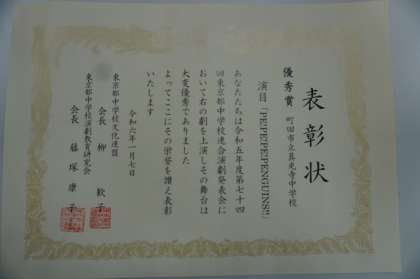 表彰状
優秀賞
町田市立真光寺中学校
演目「PE!PE!PE!PENGUINS!!」
あなたたちは令和五年度第七十四
回東京都中学校連合演劇発表会に
おいて右の劇を上演しその舞台は
大変優秀でありました
よってここにその栄誉を讃え表彰
いたします
令和六年一月七日
東京都中学校文化連盟
会長 柳 歓子
東京都中学校演劇教育研究会
会長 藤塚康子